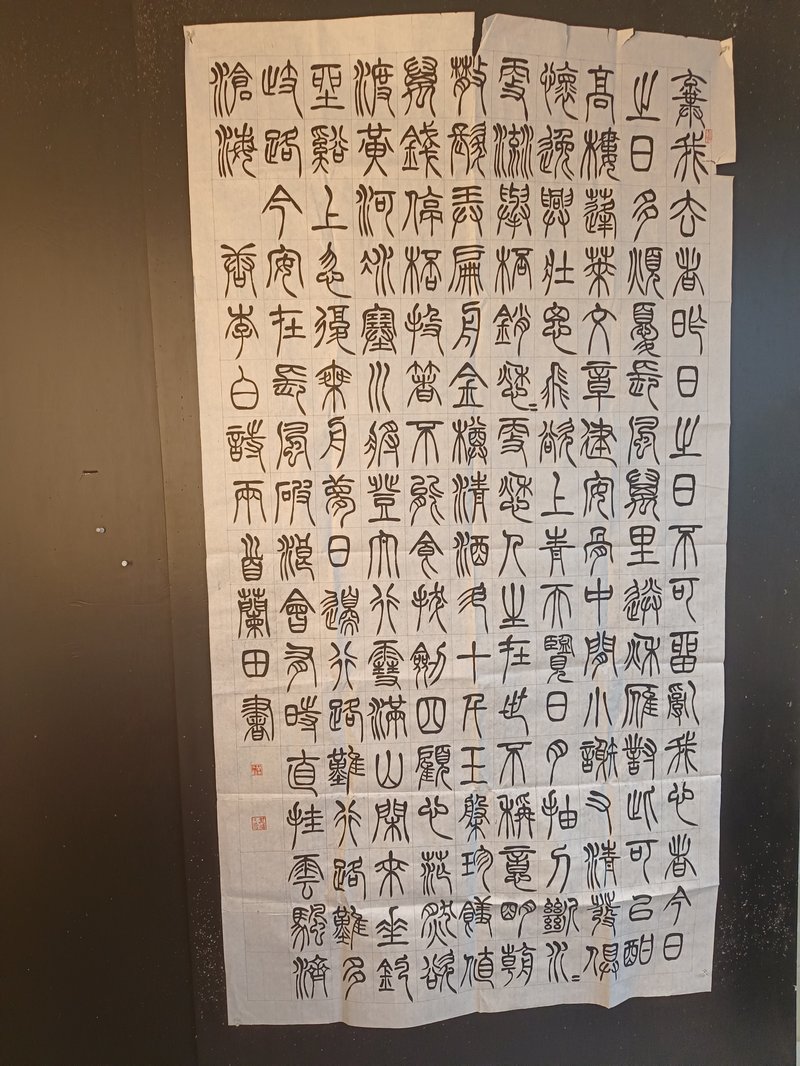 棄我去者昨日之日不可留亂我心者今日
之日多煩憂長風萬里送秋雁對此可以酣
高樓蓬萊文章建安骨中間小謝又清發俱
懷逸興壯思飛欲上青天覽日月抽刀斷水=
更流舉杯銷愁=更愁人生在世不稱意明朝
散髮弄扁舟金樽清酒斗十千玉盤珍饈值
萬錢停杯投箸不能食拔劍四顧心茫然欲
渡黃河冰塞川將登太行雪滿山閑來垂釣
碧谿上忽復乘舟夢日邊行路難行路難多
歧路今安在長風破浪會有時直挂雲帆濟
滄海 唐李白詩兩首蘭田書